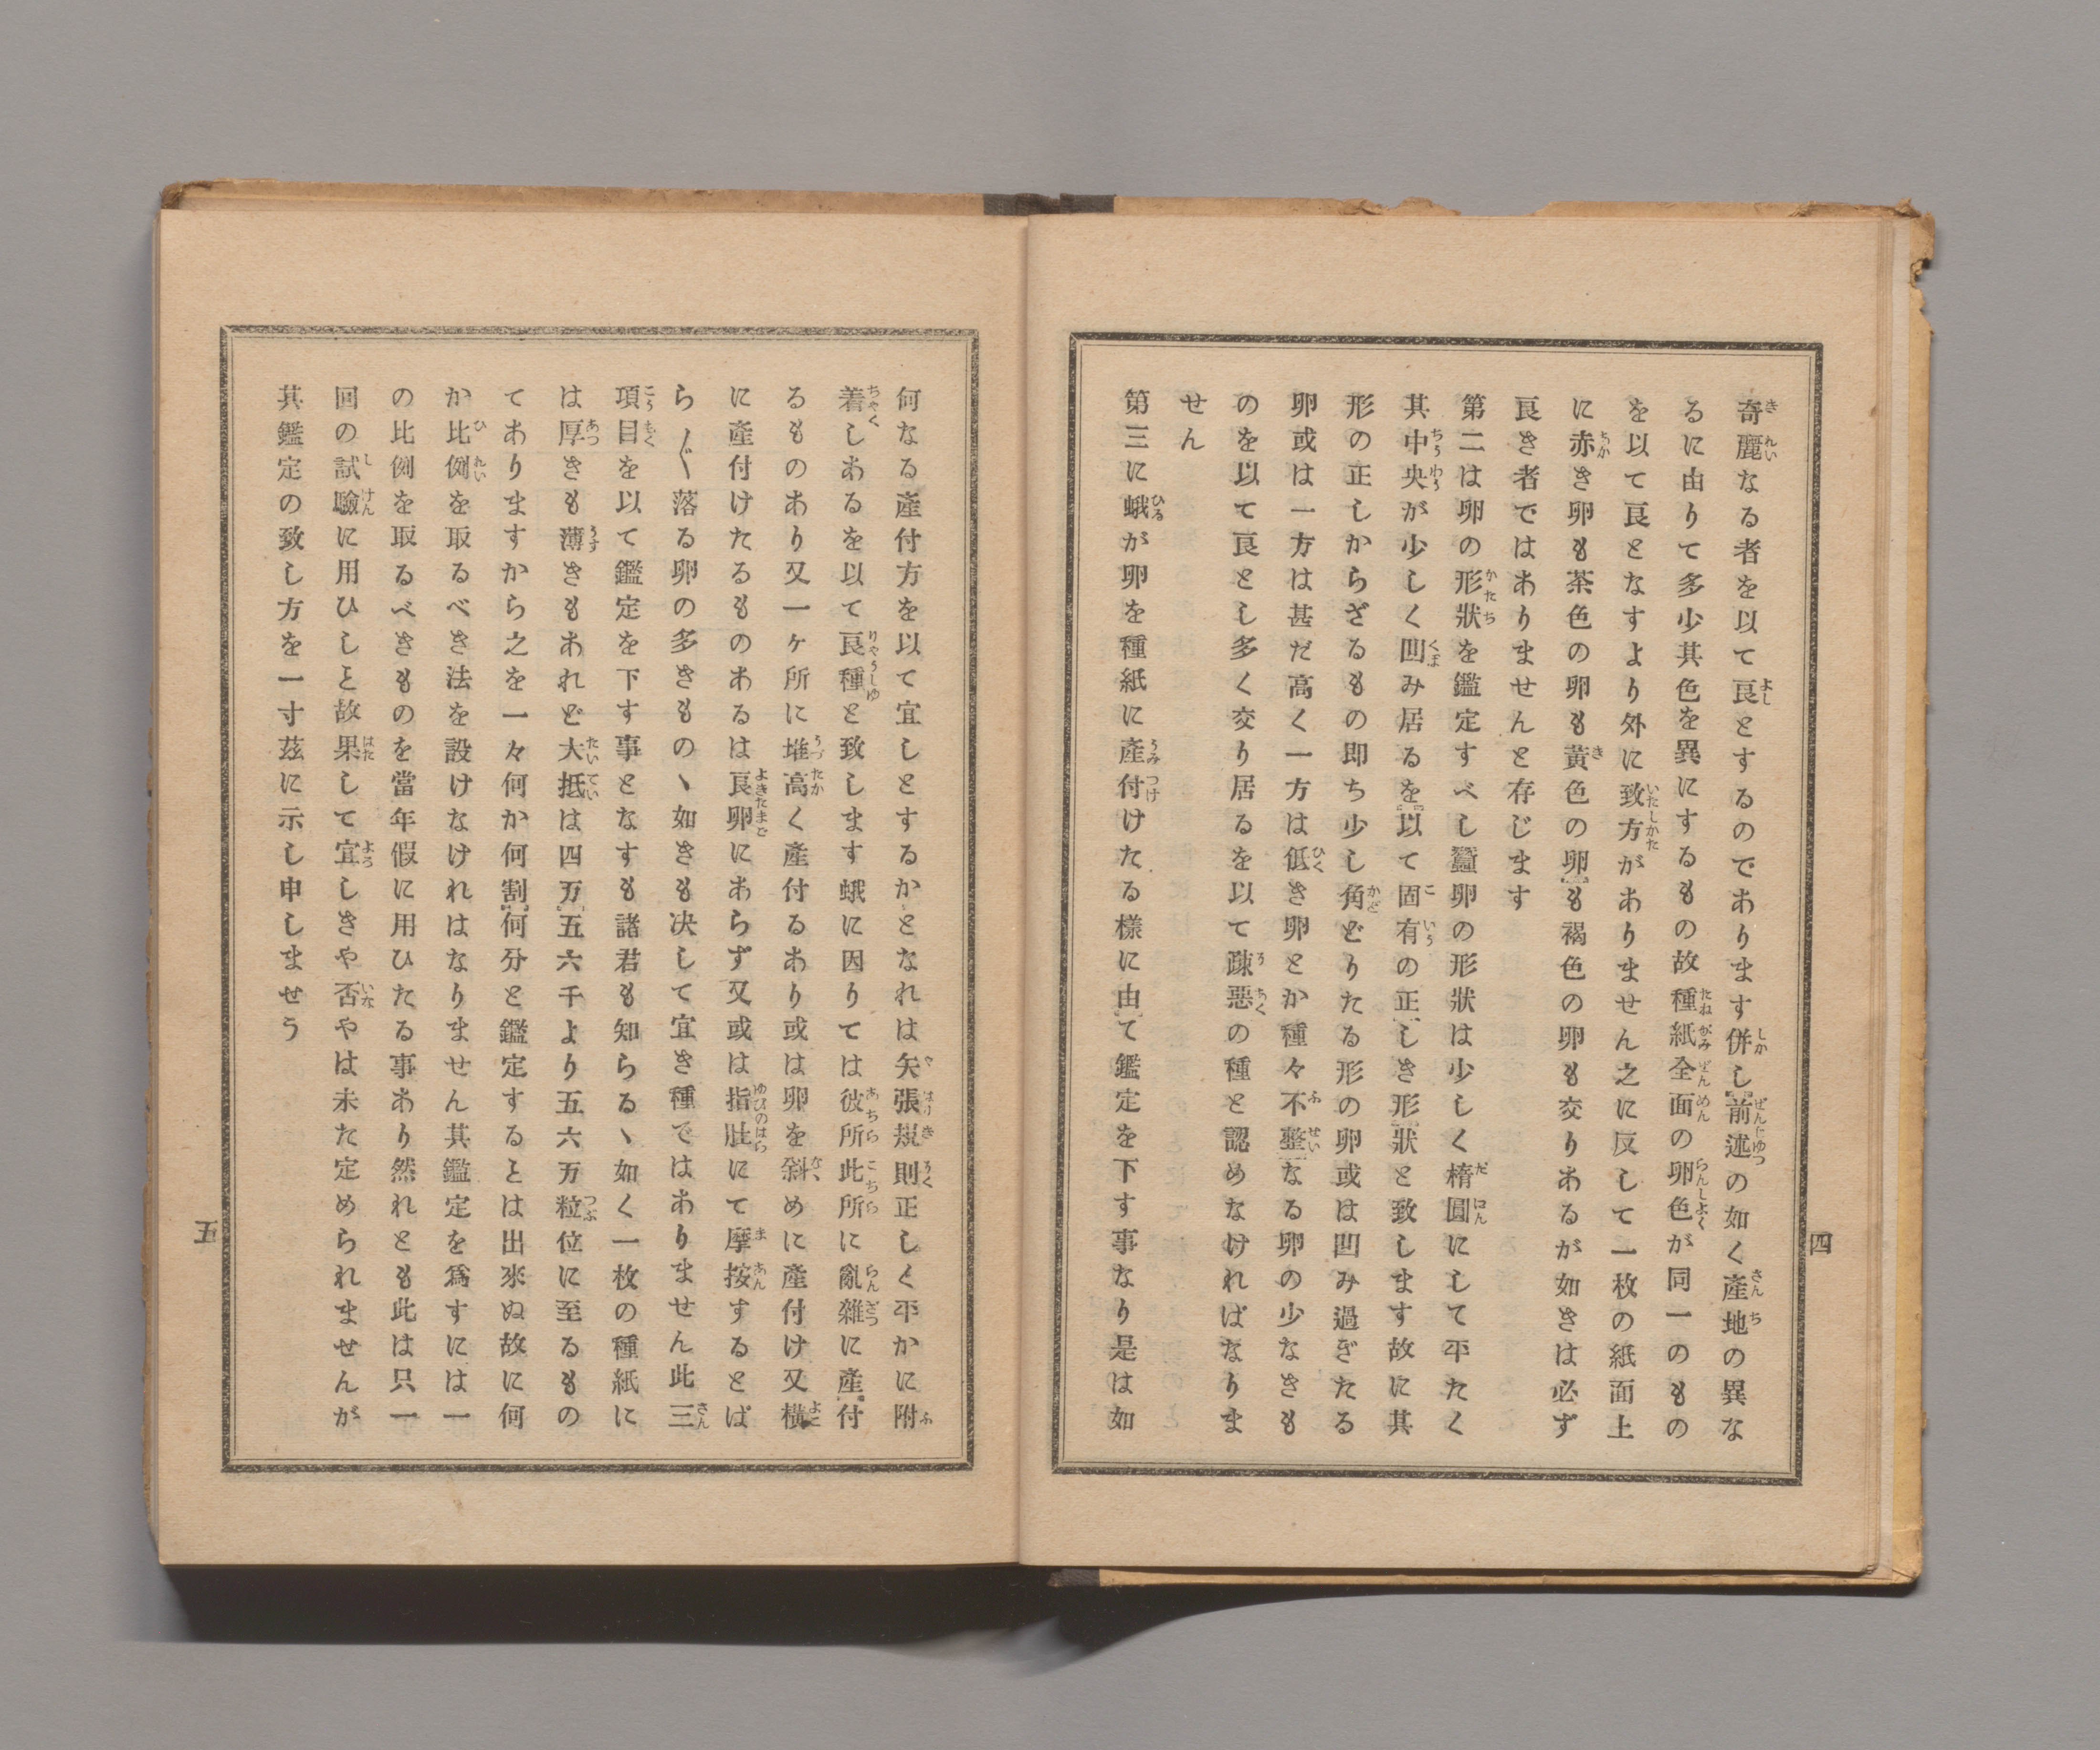 四
奇麗なる者を以て良とするのであります併し前述の如く產地の異な
るに由りて多少其色を異にするもの故種紙全面の卵色が同一のもの
を以て良となすより外に致方がありません之に反して一枚の紙面上
に赤き卵も茶色の卵も黃色の卵も褐色の卵も交りあるが如きは必ず
良き者ではありませんと存じます
第二は卵の形狀を鑑定すべし蠶卵の形狀は少しく橢圓にして平たく
其中央が少しく凹み居るを以て固有の正しき形狀と致します故に其
形の正しからざるもの即ち少し角どりたる形の卵或は凹み過ぎたる
卵或は一方は甚だ高く一方は低き卵とか種々不整なる卵の少なきも
のを以て良とし多く交り居るを以て踈惡の種と認めなければなりま
せん
第三に蛾が卵を種紙に產付けたる樣に由て鑑定を下す事なり是は如
何なる產付方を以て宜しとするかとなれは矢張規則正しく平かに附
着しあるを以て良種と致します蛾に因りては彼所此所に亂雜に產付
るものあり又一ヶ所に堆高く產付るあり或は卵を斜めに產付け又橫
に產付けたるものあるは良卵にあらず又或は指肚にて摩按するとば
ら〴〵落る卵の多きものヽ如きも决して宜き種ではありません此三
項目を以て鑑定を下す事となすも諸君も知らるヽ如く一枚の種紙に
は厚きも薄きもあれど大抵は四万五六千より五六万粒位に至るもの
てありますから之を一々何か何割何分と鑑定するとは出來ぬ故に何
か比例を取るべき法を設けなけれはなりません其鑑定を爲すには一
の比例を取るべきものを當年假に用ひたる事あり然れとも此は只一
回の試驗に用ひしと故果して宜しきや否やは未た定められませんが
其鑑定の致し方を一寸茲に示し申しませう
五